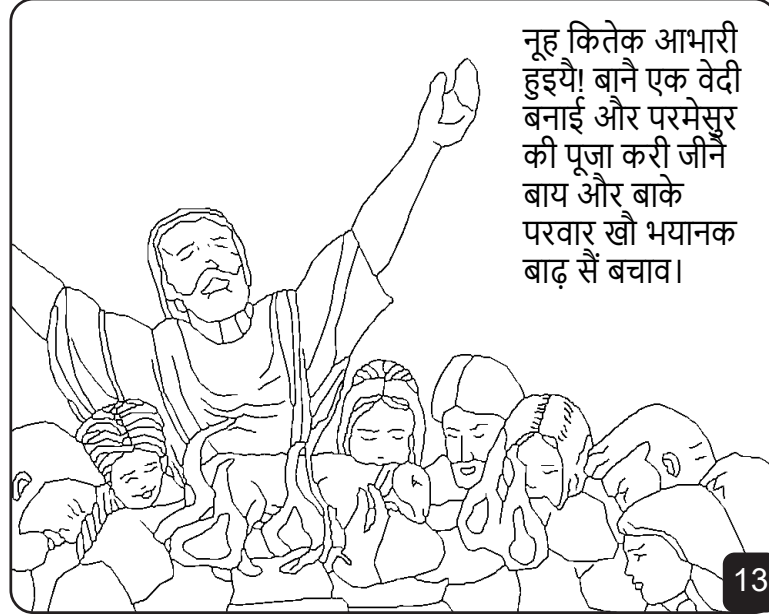 नूह कितेक आभारी
हुइयै! बानै एक वेदी
बनाई और परमेसुर
की पूजा करी जीनै
बाय और बाके
परवार खौ भयानक
बाढ़ सैं बचाव।
13